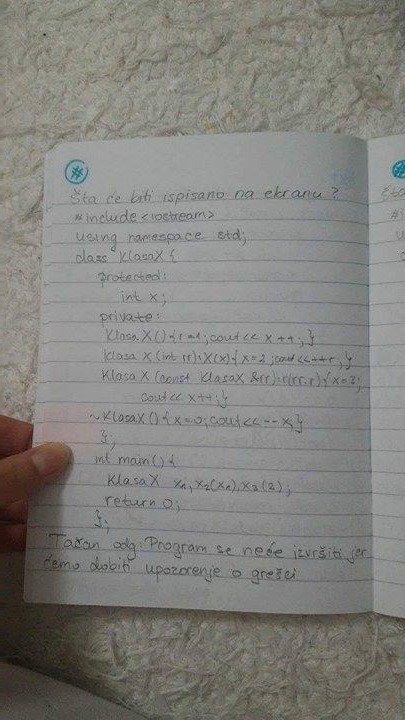 #
Šta će biti ispisano na ekranu?
#include <iostream>
using namespace std;
class KlasaX {
protected:
int x;
private:
KlasaX() { r=1; cout << x++; }
KlasaX (int rr): X(x) { x=2; cout<<++r; }
KlasaX (const KlasaX &rr):r(rr.r) { x=3;
cout << x++; }
~KlasaX() { x=0; cout << --x; }
};
int main() {
KlasaX x1, x2(x1), x3(2);
return 0;
};
Tačan odg: Program se neće izvršiti jer
ćemo dobiti upozorenje o grešci